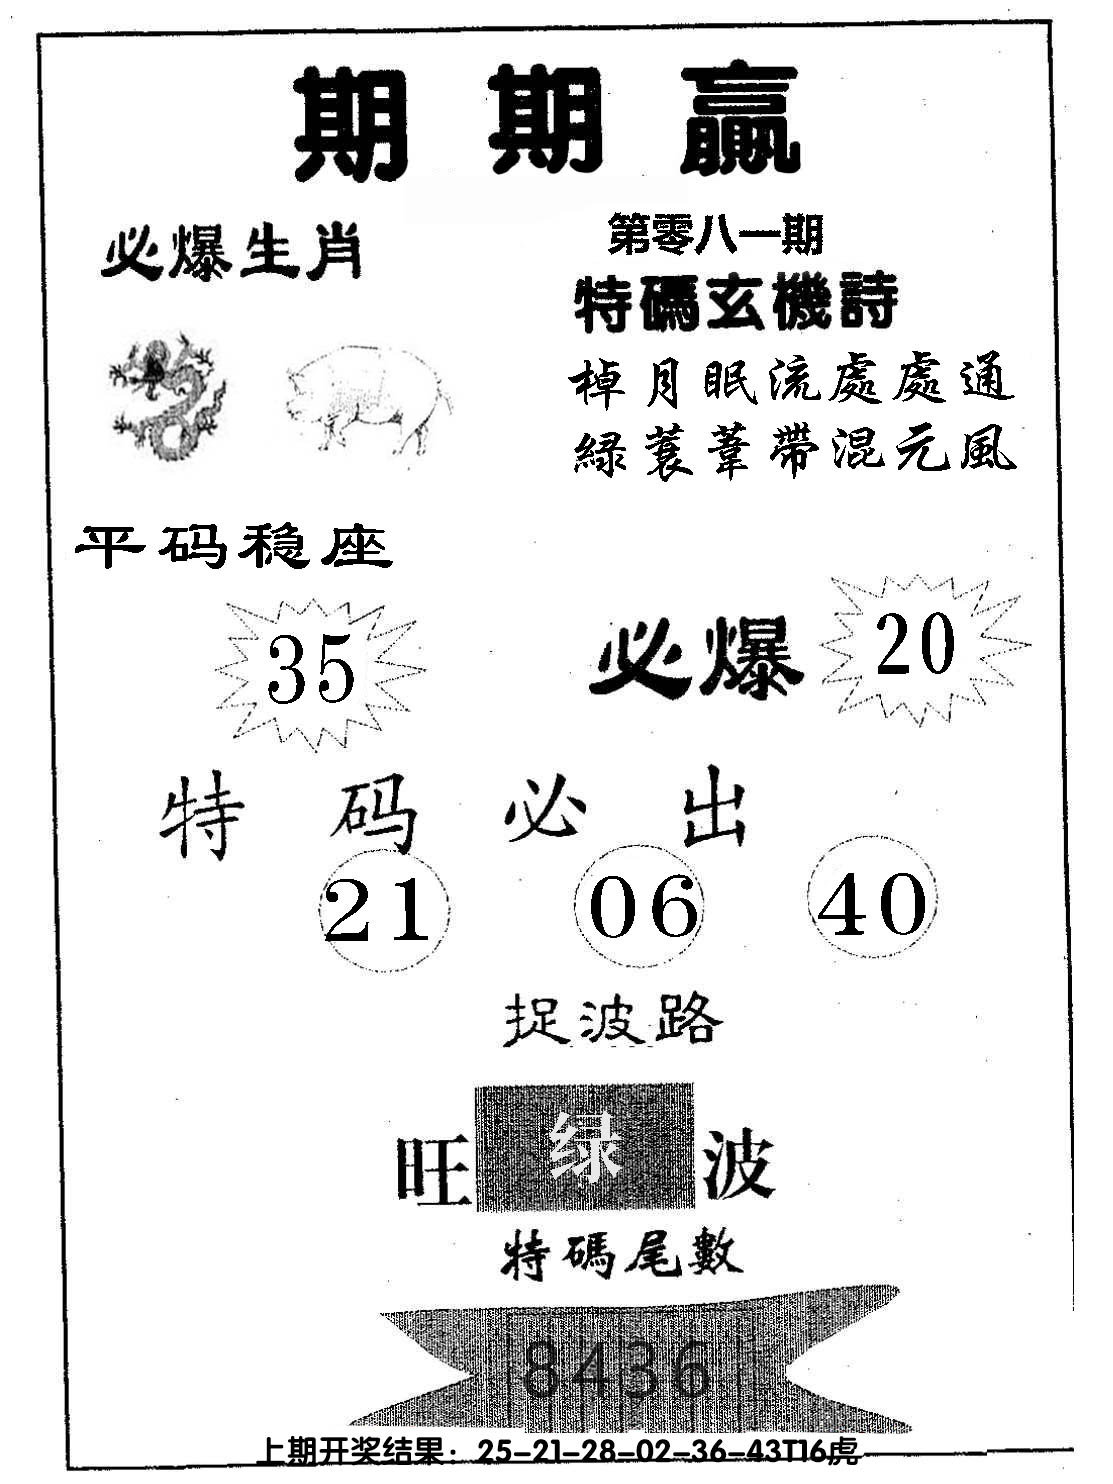 期期赢
必爆生肖
第零八一期
特碼玄機詩
棹月眠流處處通
緑蓑葦帶混元風
平码稳座
35
必爆
20
特码必出
21 06 40
捉波路
旺绿波
特碼尾數
8436
上期开奖结果：25-21-28-02-36-43T16虎